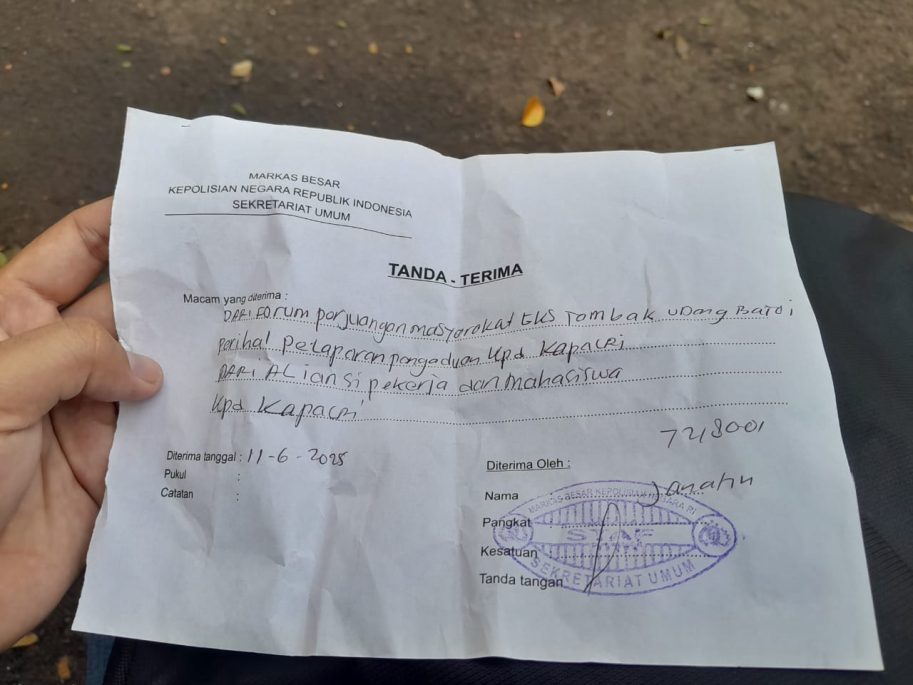 MARKAS BESAR
KEPOLISIAN NEGARA REPUBLIK INDONESIA
SEKRETARIAT UMUM
TANDA - TERIMA
Macam yang diterima :
DARI Forum perjuangan masyarakat EKS Tombak Udang
perihal Pelaporan pengaduan Kpd KAPOLRI
DARI ALiansi pekerja dan mahasiswa
Kpd KAPOLRI
Diterima tanggal : 11-6-2025
Pukul :
Catatan :
Diterima Oleh :
Nama :
Pangkat
Kesatuan :
Tanda tangan
MARKAS BESAR KEPOLISIAN NEGARA RI
STAF
SEKRETARIAT UMUM